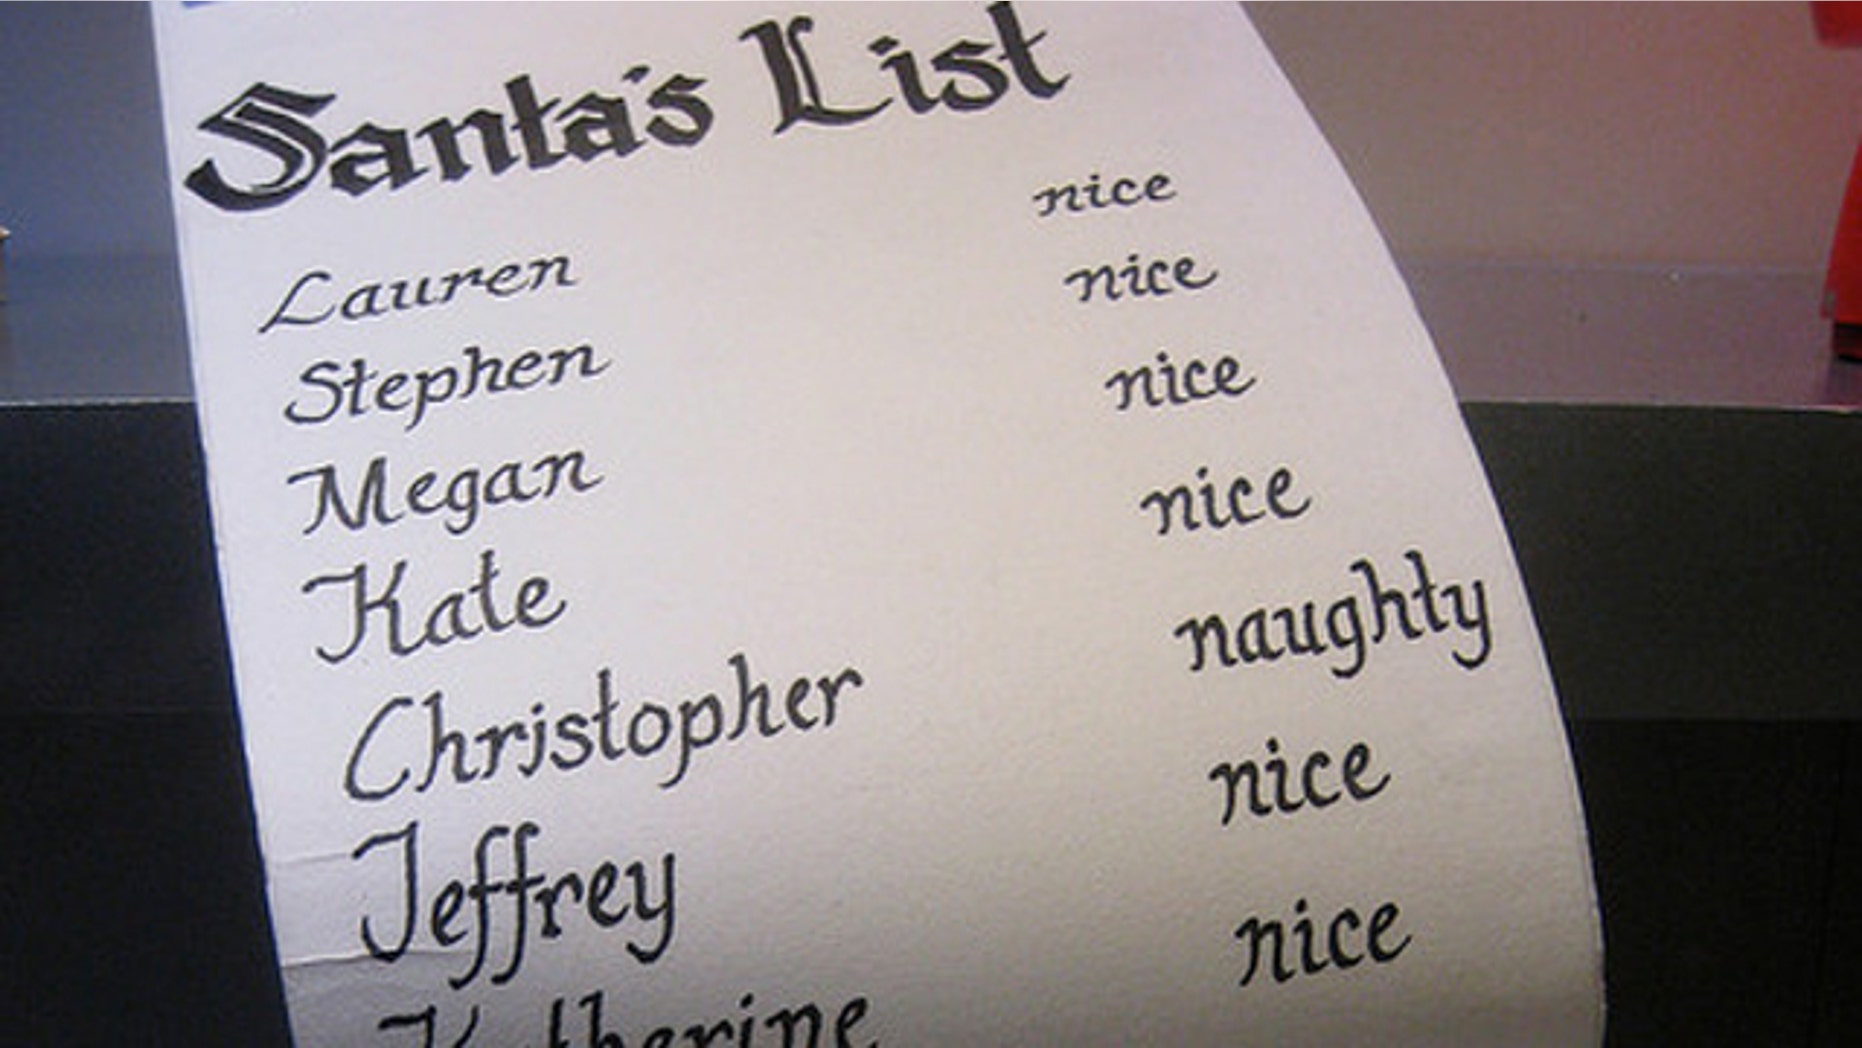 Santa's List
Lauren nice
Stephen nice
Megan nice
Kate nice
Christopher naughty
Jeffrey nice
Katherine nice